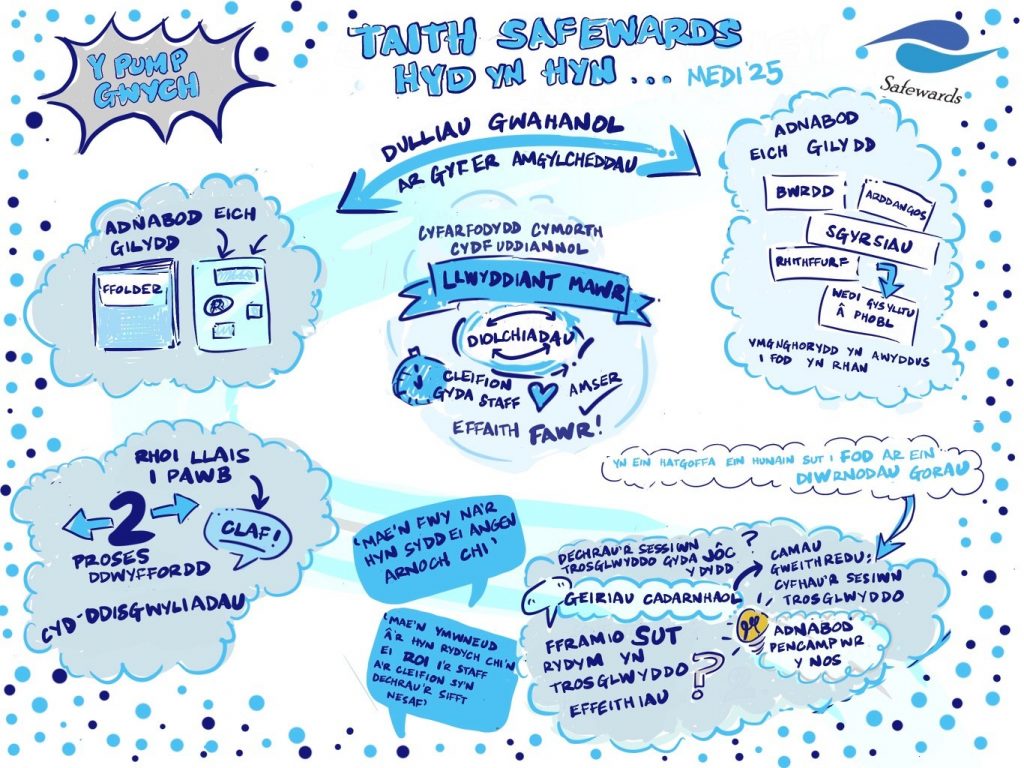 Y PUMP
GWYCH
TAITH SAFEWARDS
HYD YN HYN ... MEDI '25
Safewards
DULLIAU GWAHANOL
AR GYFER AMGYLCHEDDAU
ADNABOD EICH
GILYDD
FFOLDER
CYFARFODYDD CYMORTH
CYDFUDDIANNOL
LLWYDDIANT MAWR
DIOLCHIADAU
CLEIFION
GYDA STAFF
AMSER
EFFAITH FAWR!
ADNABOD
EICH GILYDD
BWRDD
ARDDANGOS
SGYRSIAU
RHITHFFURF
WEDI GYSYLLTU
Â PHOBL
YMGNGHORYDD YN AWYDDUS
I FOD YN RHAN
RHOI LLAIS
I PAWB
2
CLAF!
PROSES
DDWYFFORDD
CYD-DDISGWYLIADAU
'MAE'N FWY NA'R
HYN SYDD EI ANGEN
ARNOCH CHI'
'MAE'N YMWNEUD
Â'R HYN RYDYCH CHI'N
EI ROI I'R STAFF
A'R CLEIFION SY'N
DECHRAU'R SIFFT
NESAF'
YN EIN HATGOFFA EIN HUNAIN SUT I FOD AR EIN
DIWRNODAU GORAU
DECHRAU'R SESSIWN
TROSGLWYDDO GYDA JÔC
Y DYDD
?
GEIRIAU CADARNHAOL
CAMAU
GWEITHREDU:
CYFHAU'R SESIWN
TROSGLWYDDO
FFRAMIO SUT
RYDYM YN
TROSGLWYDDO
EFFEITHIAU
?
ADNABOD
PENCAMPWR
Y NOS